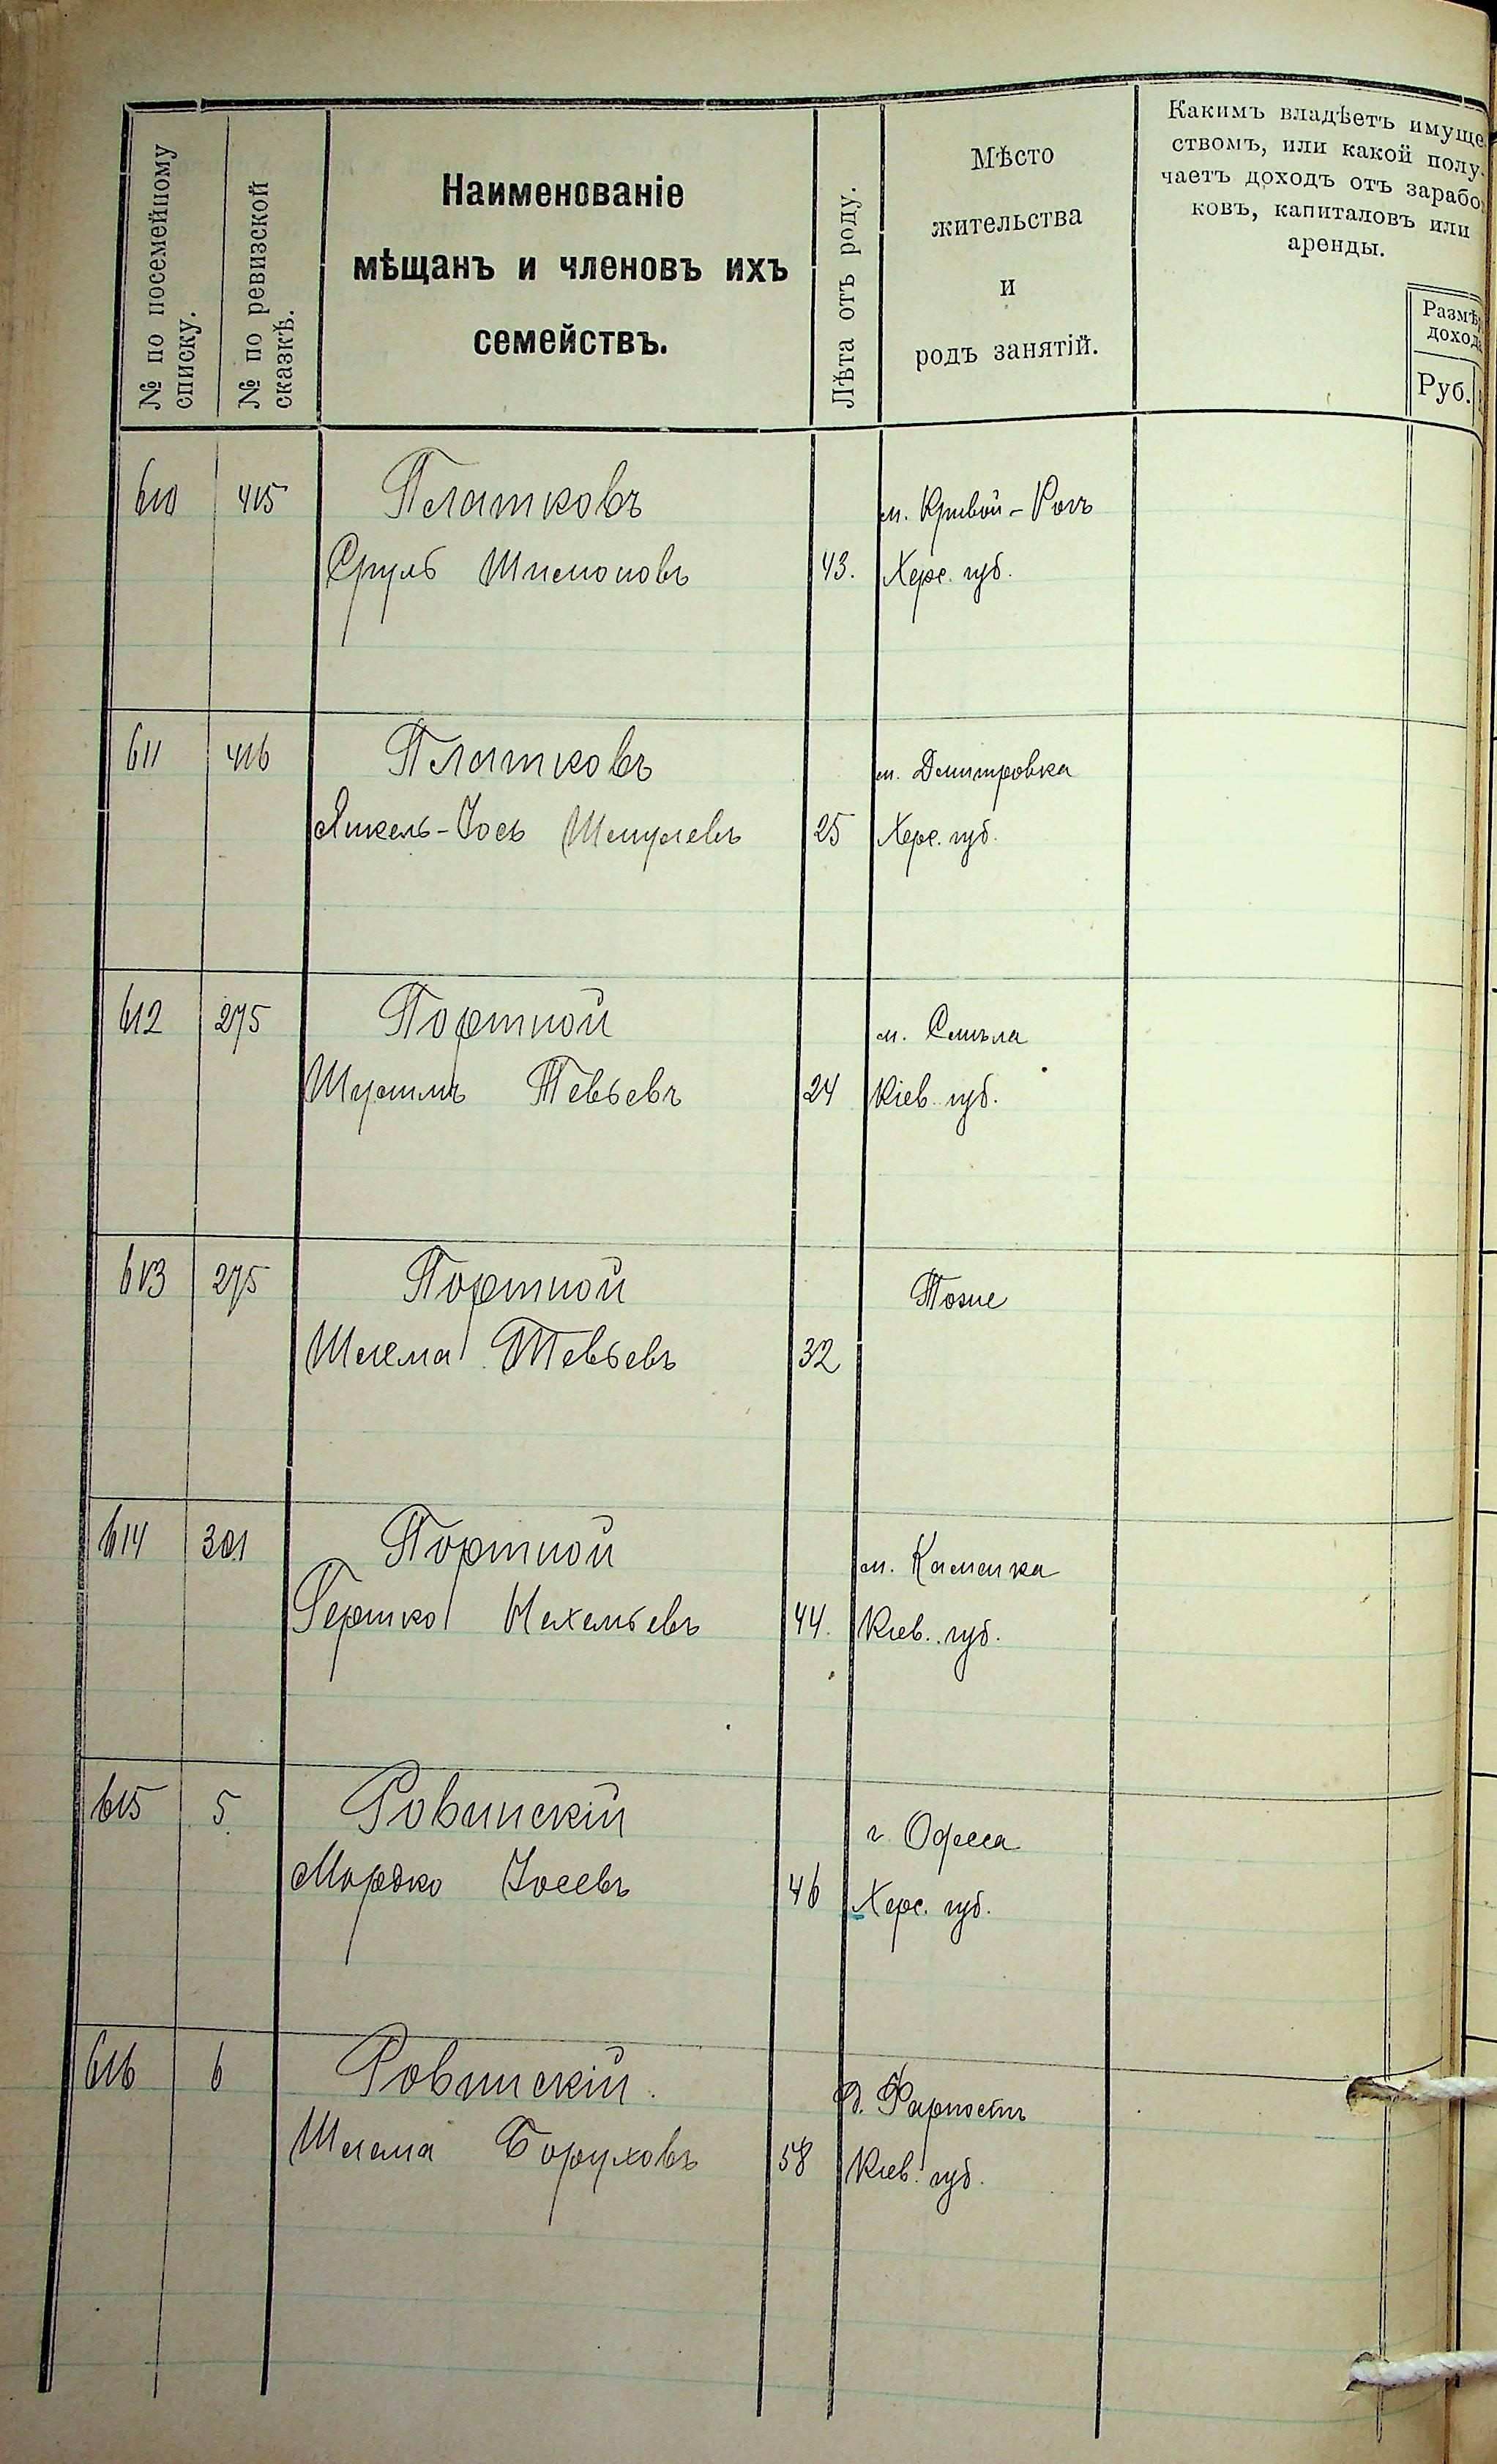 № по посемейному
списку.
№ по ревизской
сказкѣ.
Наименованіе
мѣщанъ и членовъ ихъ
семействъ.
Лѣта отъ роду.
Мѣсто
жительства
и
родъ занятій.
Какимъ владѣетъ имуще
ствомъ, или какой полу-
чаетъ доходъ отъ зарабо
ковъ, капиталовъ или
аренды.
Размѣ
доход
Руб.
610 415 Платковъ м. Кривой-Рогъ
Сруль Шимоновъ 43. Херс. губ.
611 416 Платковъ м. Дмитровка
Янкель-Іось Шмулевъ 25 Херс. губ.
612 275 Портной м. Смѣла
Тевьевъ 24 Кіев. губ.
613 275 Портной Тоже
Шлема Тевьевъ 32
614 301 Портной м. Каменка
Гершко Нахемьевъ 44. Кіев. губ.
615 5 Ровинскій г. Одесса
Мордко Іосевъ 46 Херс. губ.
616 6 Ровинскій. Д.
Шлема Боруховъ 58 Кіев. губ.